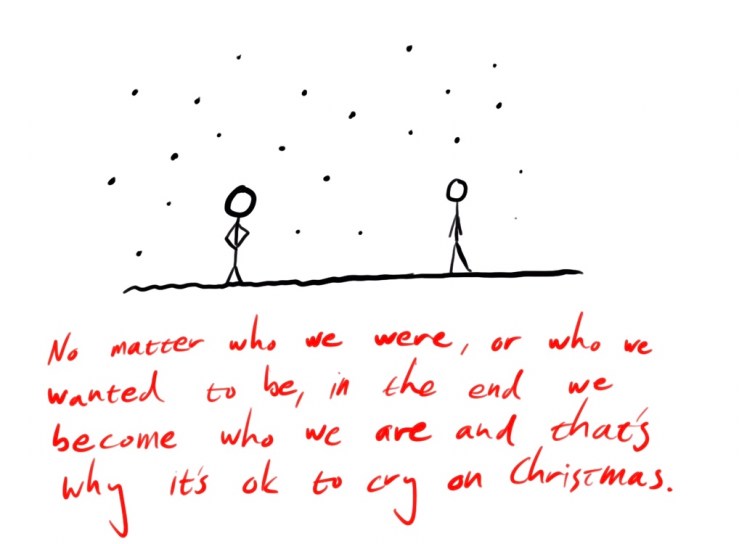 No matter who we were, or who we
wanted to be, in the end we
become who we are and that's
why it's ok to cry on Christmas.